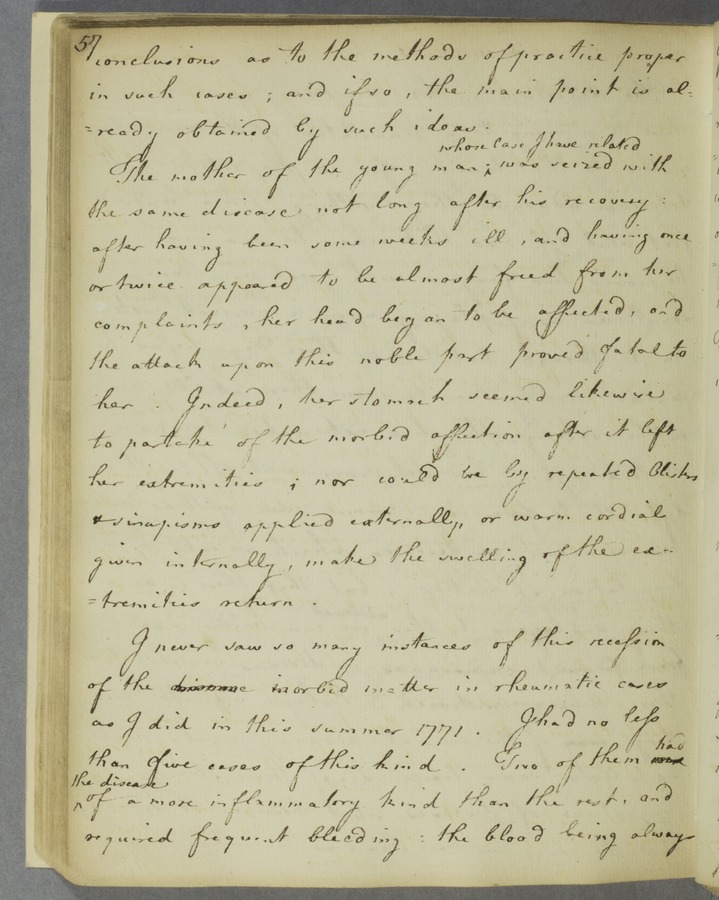 57
conclusions as to the methods of practice proper
in such cases ; and if so , the main point is al-
=ready obtained by such ideas.
whose case I have related
The mother of the young man ; ‸ was seized with
the same disease not long after his recovery :
after having been some weeks ill , and having once
or twice appeared to be almost freed from her
complaints , her head began to be affected, and
the attack upon this noble part proved fatal to
her . Indeed, her stomach seemed likewise
to partake of the morbid affection after it left
her extremities ; nor could we by repeated blisters
& sinapisms applied externally, or warm cordial
given internally, make the swelling of the ex-
=tremities return .
I never saw so many instances of this recession
of the disease morbid matter in rheumatic cases
as I did in this summer 1771 . I had no less
than five cases of this kind . Two of them were had
the disease
‸ of a more inflammatory kind than the rest, and
required frequent bleeding : the blood being always